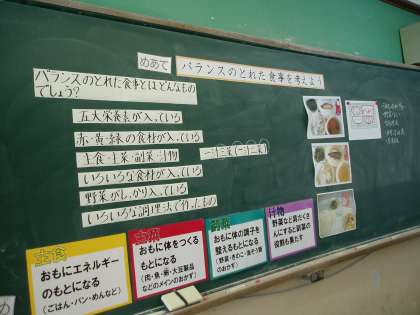 めあて
バランスのとれた食事を考えよう
バランスのとれた食事とはどんなもの
でしょう？
五大栄養素が入っている
赤・黄・緑の食材が入っている
主食・主菜・副菜・汁物
一汁二菜(一汁三菜)
いろいろな食材が入っている
野菜がしっかり入っている
いろいろな調理法で作ったもの
主食
おもにエネルギー
のもとになる
(ごはん・パン・めんなど)
主菜
おもに体をつくる
もとになる
(肉・魚・卵・大豆製品
などのメインのおかず)
副菜
おもに体の調子を
整えるもとになる
(野菜・きのこ・海そう類
のおかず)
汁物
野菜など具だくさ
んにすると副菜の
役割も果たす
め